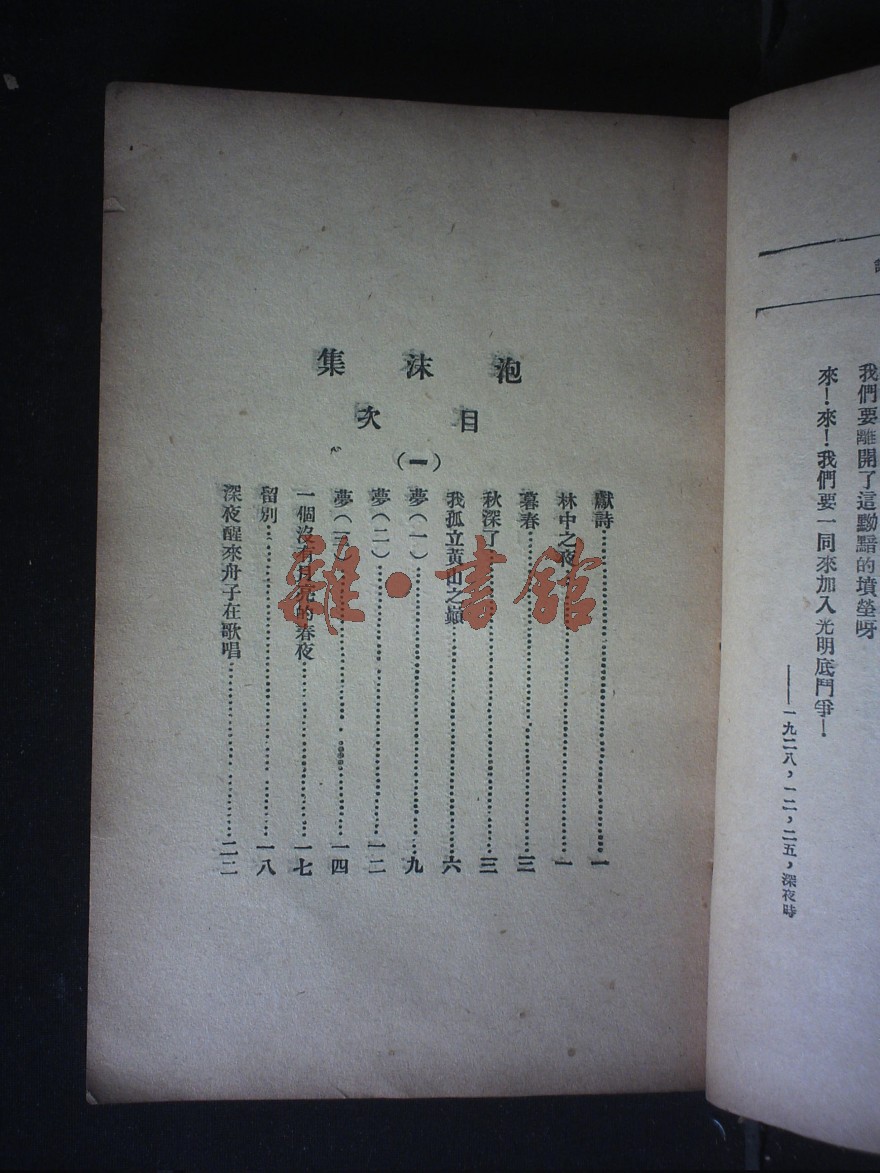 我們要離開了這黝黯的墳塋呀
來！來！我們要一同來加入光明底鬥爭！
——一九二八，一二，二五，深夜時
泡沫集
目次
（一）
獻詩……一
林中之夜……一
暮春……三
秋深了……三
我孤立黃山之巔……六
夢（一）……九
夢（二）……一二
夢（三）……一四
一個沒有月亮的春夜……一七
留別……一八
深夜醒來舟子在歌唱……二二
雜·書館